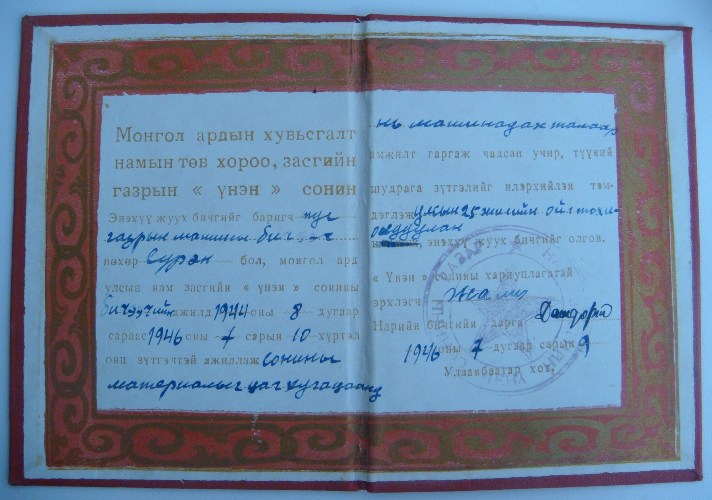 Монгол ардын хувьсгалт
намын төв хороо, засгийн
газрын « үнэн » сонин
Энэхүү жуух бичгийг баригч туг
газрын машины
нөхөр Сүрэн бол, монгол ард
улсын нам засгийн « үнэн » сонины
бичээчийн ажилд 1944 оны 8 дугаар
сараас 1946 оны 7 сарын 10 хүртэл
онц зүтгэлтэй ажиллаж сонины
материалыг цаг хугацаанд
нь машинадах талаар
амжилт гаргаж чадсан учир, түүний
шударга зүтгэлийг илэрхийлэн тэм-
дэглэж улсын 25 жилийн ой тохи-
олдуулан
энэхүү жуух бичгийг олгов.
« Үнэн » сонины хариуплагатай
эрхлэгч
Нарийн бичгийн дарга
1946 оны 7 дугаар сарын 9
Улаанбаатар хот.